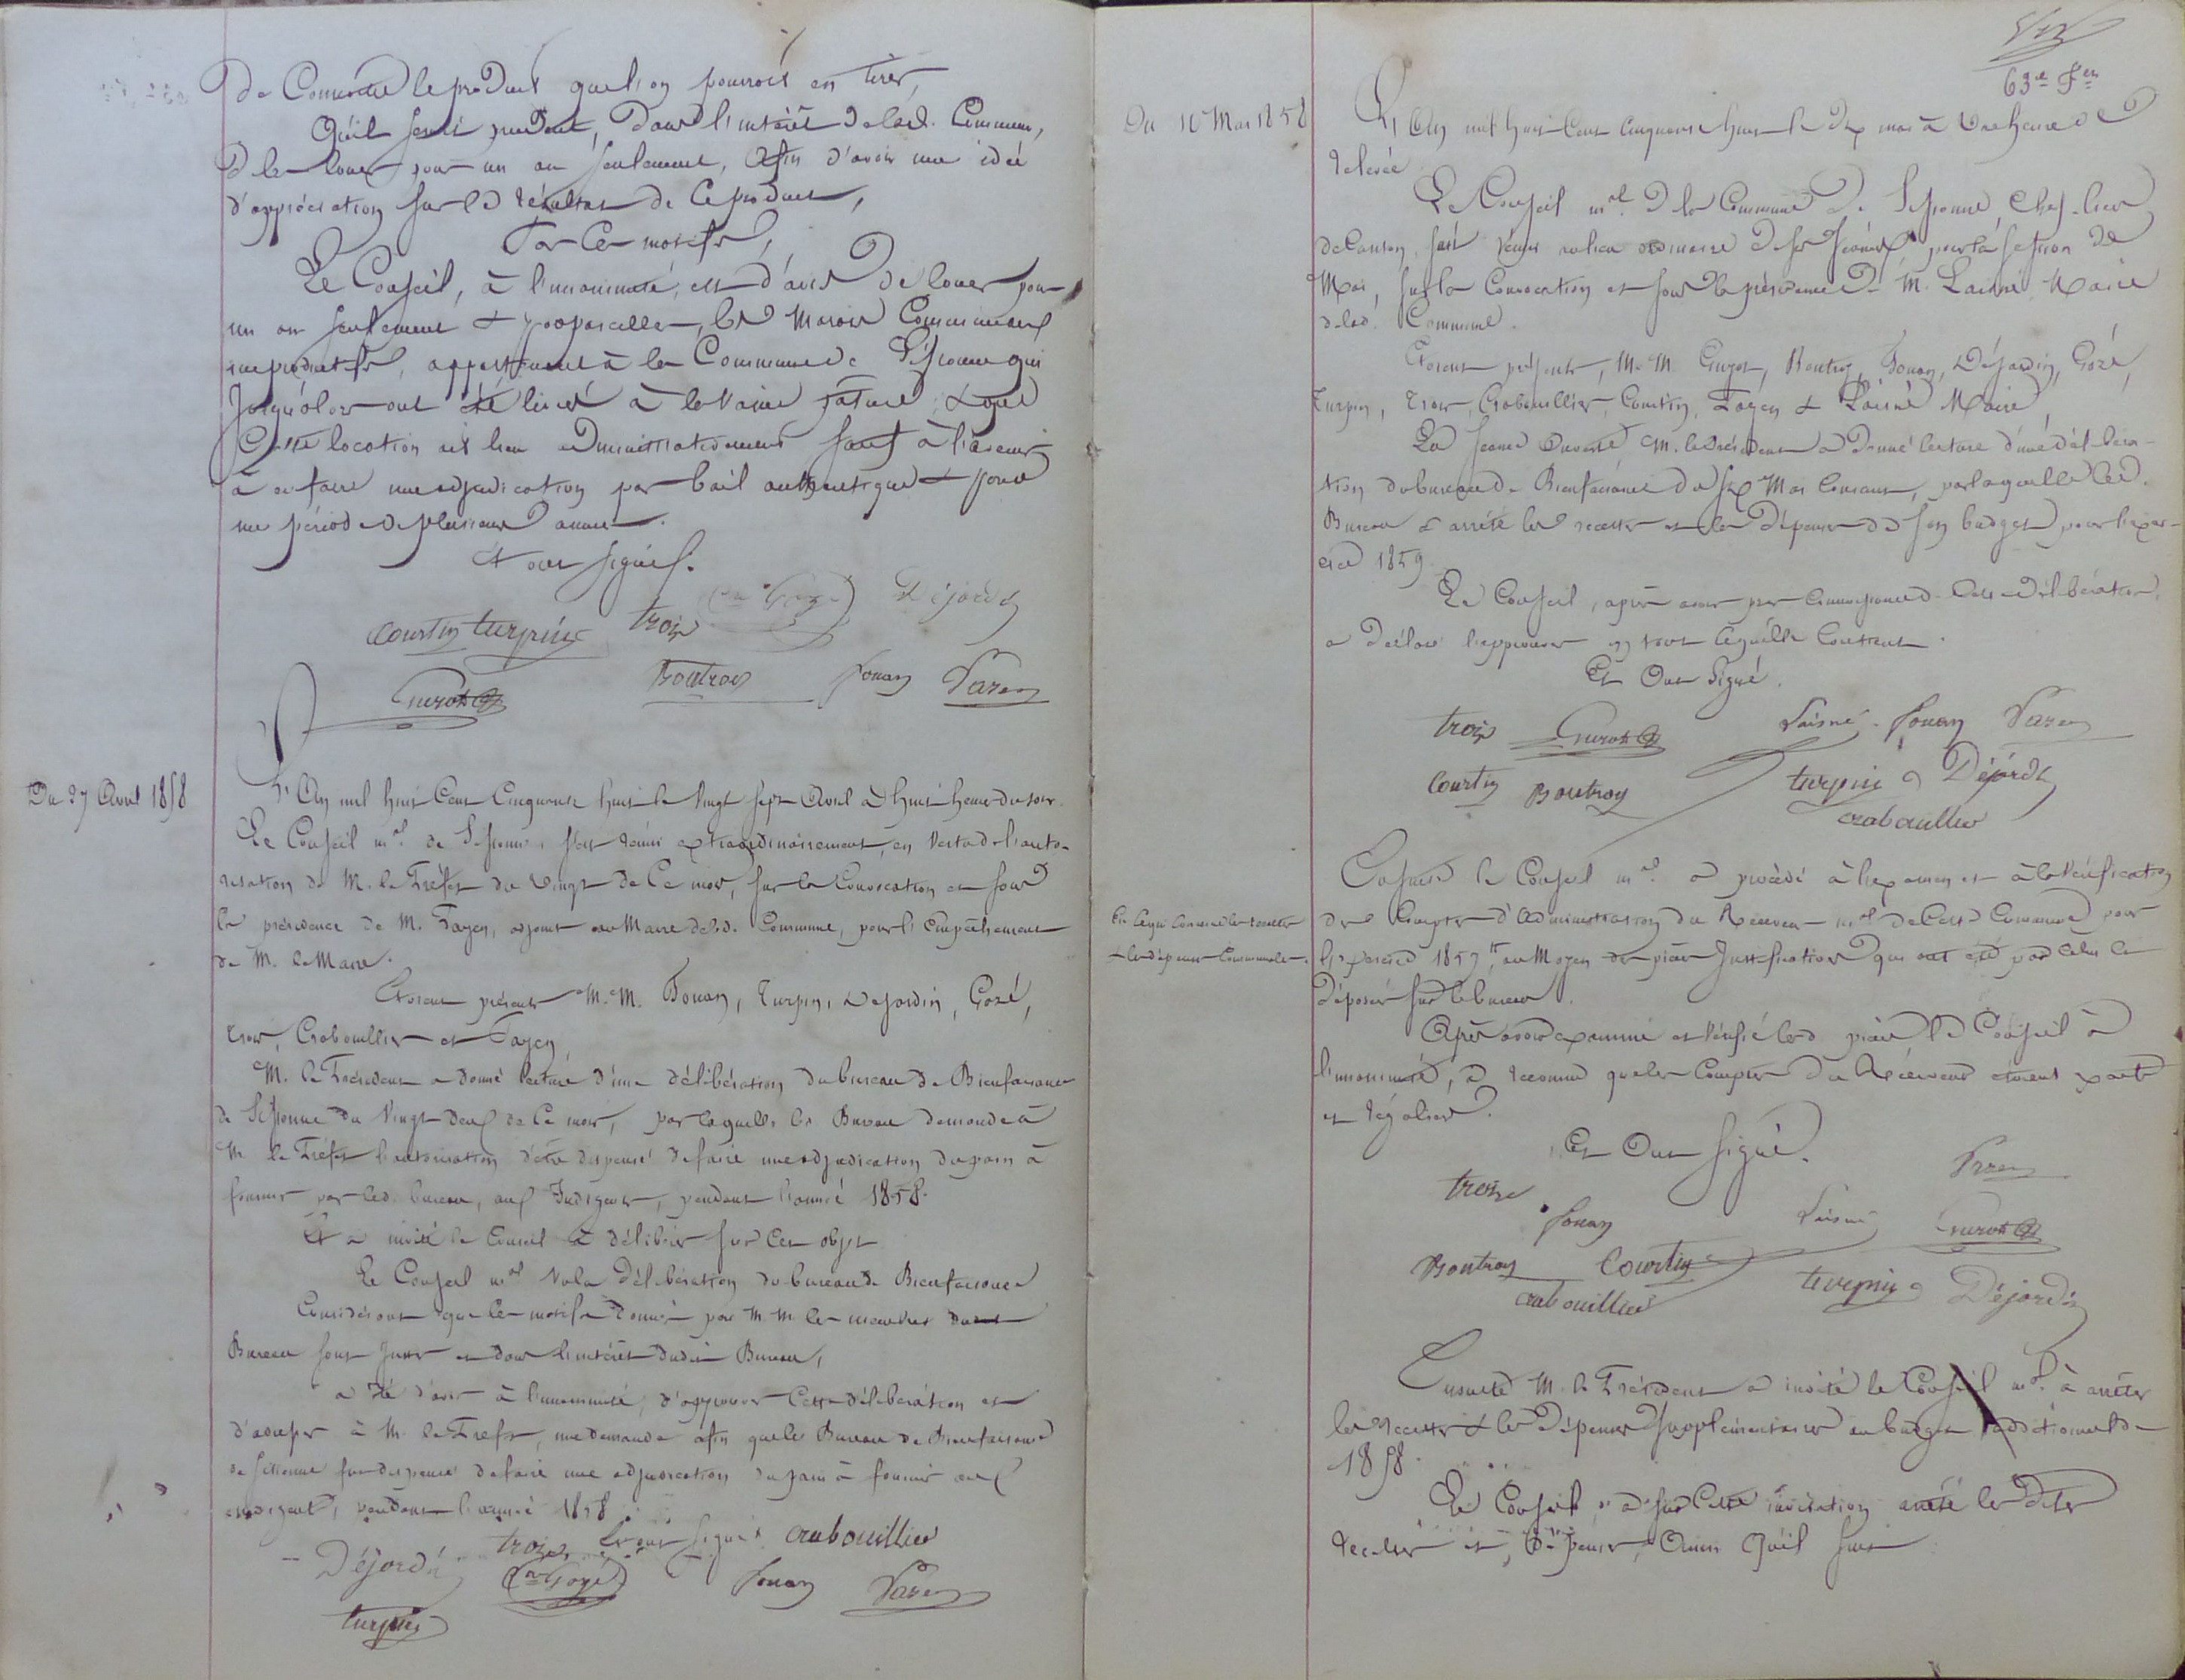 de Connaitre le produit que l'on pourroit en tirer,
Qu'il seroit prudent, dans l'intérêt de lad. Commune,
de les louer pour un an seulement, afin d'avoir une idée
d'appréciation sur le résultat de ce produit,
Par ces motifs,
Le Conseil, à l'unanimité, est d'avis de louer pour
un an seulement & par parcelles, les Marais Communaux
improductifs, appartenant à la Commune de Sissonne qui
Jusqu'alors ont été livrés à la Vaine pature, & que
Cette location ait lieu administrativement sauf à l'avenir
à en faire une adjudication par bail authentique & pour
une période de plusieurs années.
Et ont signés.
Courtin turpin trois Gozé Déjardin
Guyot Boutroy fouan Payen
Du 27 Avril 1858
L'An mil huit Cent Cinquante huit le Vingt sept Avril à huit heures du soir.
Le Conseil m.al de Sissonne, s'est réuni extraordinairement, en vertu de l'auto-
risation de M. le Préfet du Vingt de Ce mois, sur la Convocation et sous
la présidence de M. Payen, adjoint au Maire de lad. Commune, pour l'Empêchement
de M. le Maire.
Etoient présents M.M. Fouan, Turpin, Dejardin, Gozé,
trois, Crabouillier et Payen,
M. le Président a donné lecture d'une délibération du bureau de Bienfaisance
de Sissonne du Vingt deux de Ce mois, par laquelle le Bureau demande à
M. le Préfet l'autorisation d'être dispensé de faire une adjudication du pain à
fournir par led. bureau, aux Indigents, pendant l'année 1858.
Et a invité le Conseil à délibérer sur cet objet
Le Conseil m.al Vu la délibération du bureau de Bienfaisance
Considérant que les motifs donnés par M.M. les membres dudit
Bureau sont Justes et dans l'intérêt dudit Bureau,
a été d'avis à l'unanimité, d'approuver Cette délibération et
d'adresser à M. le Préfet, une demande afin que le Bureau de Bienfaisance
de Sissonne fut dispensé de faire une adjudication du pain à fournir aux
indigents, pendant l'année 1858.
Et ont signé. crabouillier
Déjardin trois Gozé fouan Payen
turpin
63e
Du 10 Mai 1858
L'An mil huit Cent Cinquante huit le dix mai à Une heure de
relevée
Le Conseil m.al de la Commune de Sissonne, Chef-lieu
de Canton, s'est réuni au lieu ordinaire de ses séances, pour la session de
Mai, sur la Convocation et sous la présidence de M. Laisné Maire
de lad. Commune.
Etoient présents, M.M. Guyot, Boutroy, Fouan, Déjardin, Gozé,
Turpin, Trois, Crabouillier, Courtin, Payen & Laisné Maire,
La séance Ouverte M. le Président a donné lecture d'une délibéra-
tion du bureau de Bienfaisance du six Mai Courant, par laquelle led.
Bureau a arrêté les recettes et les dépenses de son budget pour l'exer-
cice 1859.
Le Conseil, après avoir pris Connaissance de Cette délibération,
a déclaré l'approuver en tout ce qu'elle Contient.
Et Ont Signé.
trois Guyot Laisné fouan Payen
Courtin Boutroy turpin Déjardin
crabouillier
En ce qui Concerne les recettes
& les dépenses Communales.
Ensuite le Conseil m.al a procédé à l'examen et à la Vérification
des Comptes d'Administration du Receveur m.al de Cette Commune pour
l'exercice 1857, au Moyen des pièces Justificatives qui ont été par celui-ci
déposées sur le bureau.
Après avoir examiné et vérifié lesd. pièces le Conseil à
l'unanimité, a reconnu que les Comptes du Receveur étoient exacts
et réguliers.
Et Ont Signé.
trois fouan Laisné Payen
Guyot
Boutroy Courtin turpin Déjardin
crabouillier
Ensuite M. le Président a invité le Conseil m.al à arrêter
les recettes & les dépenses supplémentaires au budget additionnel de
1858.
Le Conseil, a sur Cette invitation arrêté les dites
recettes et dépenses, Ainsi Qu'il suit